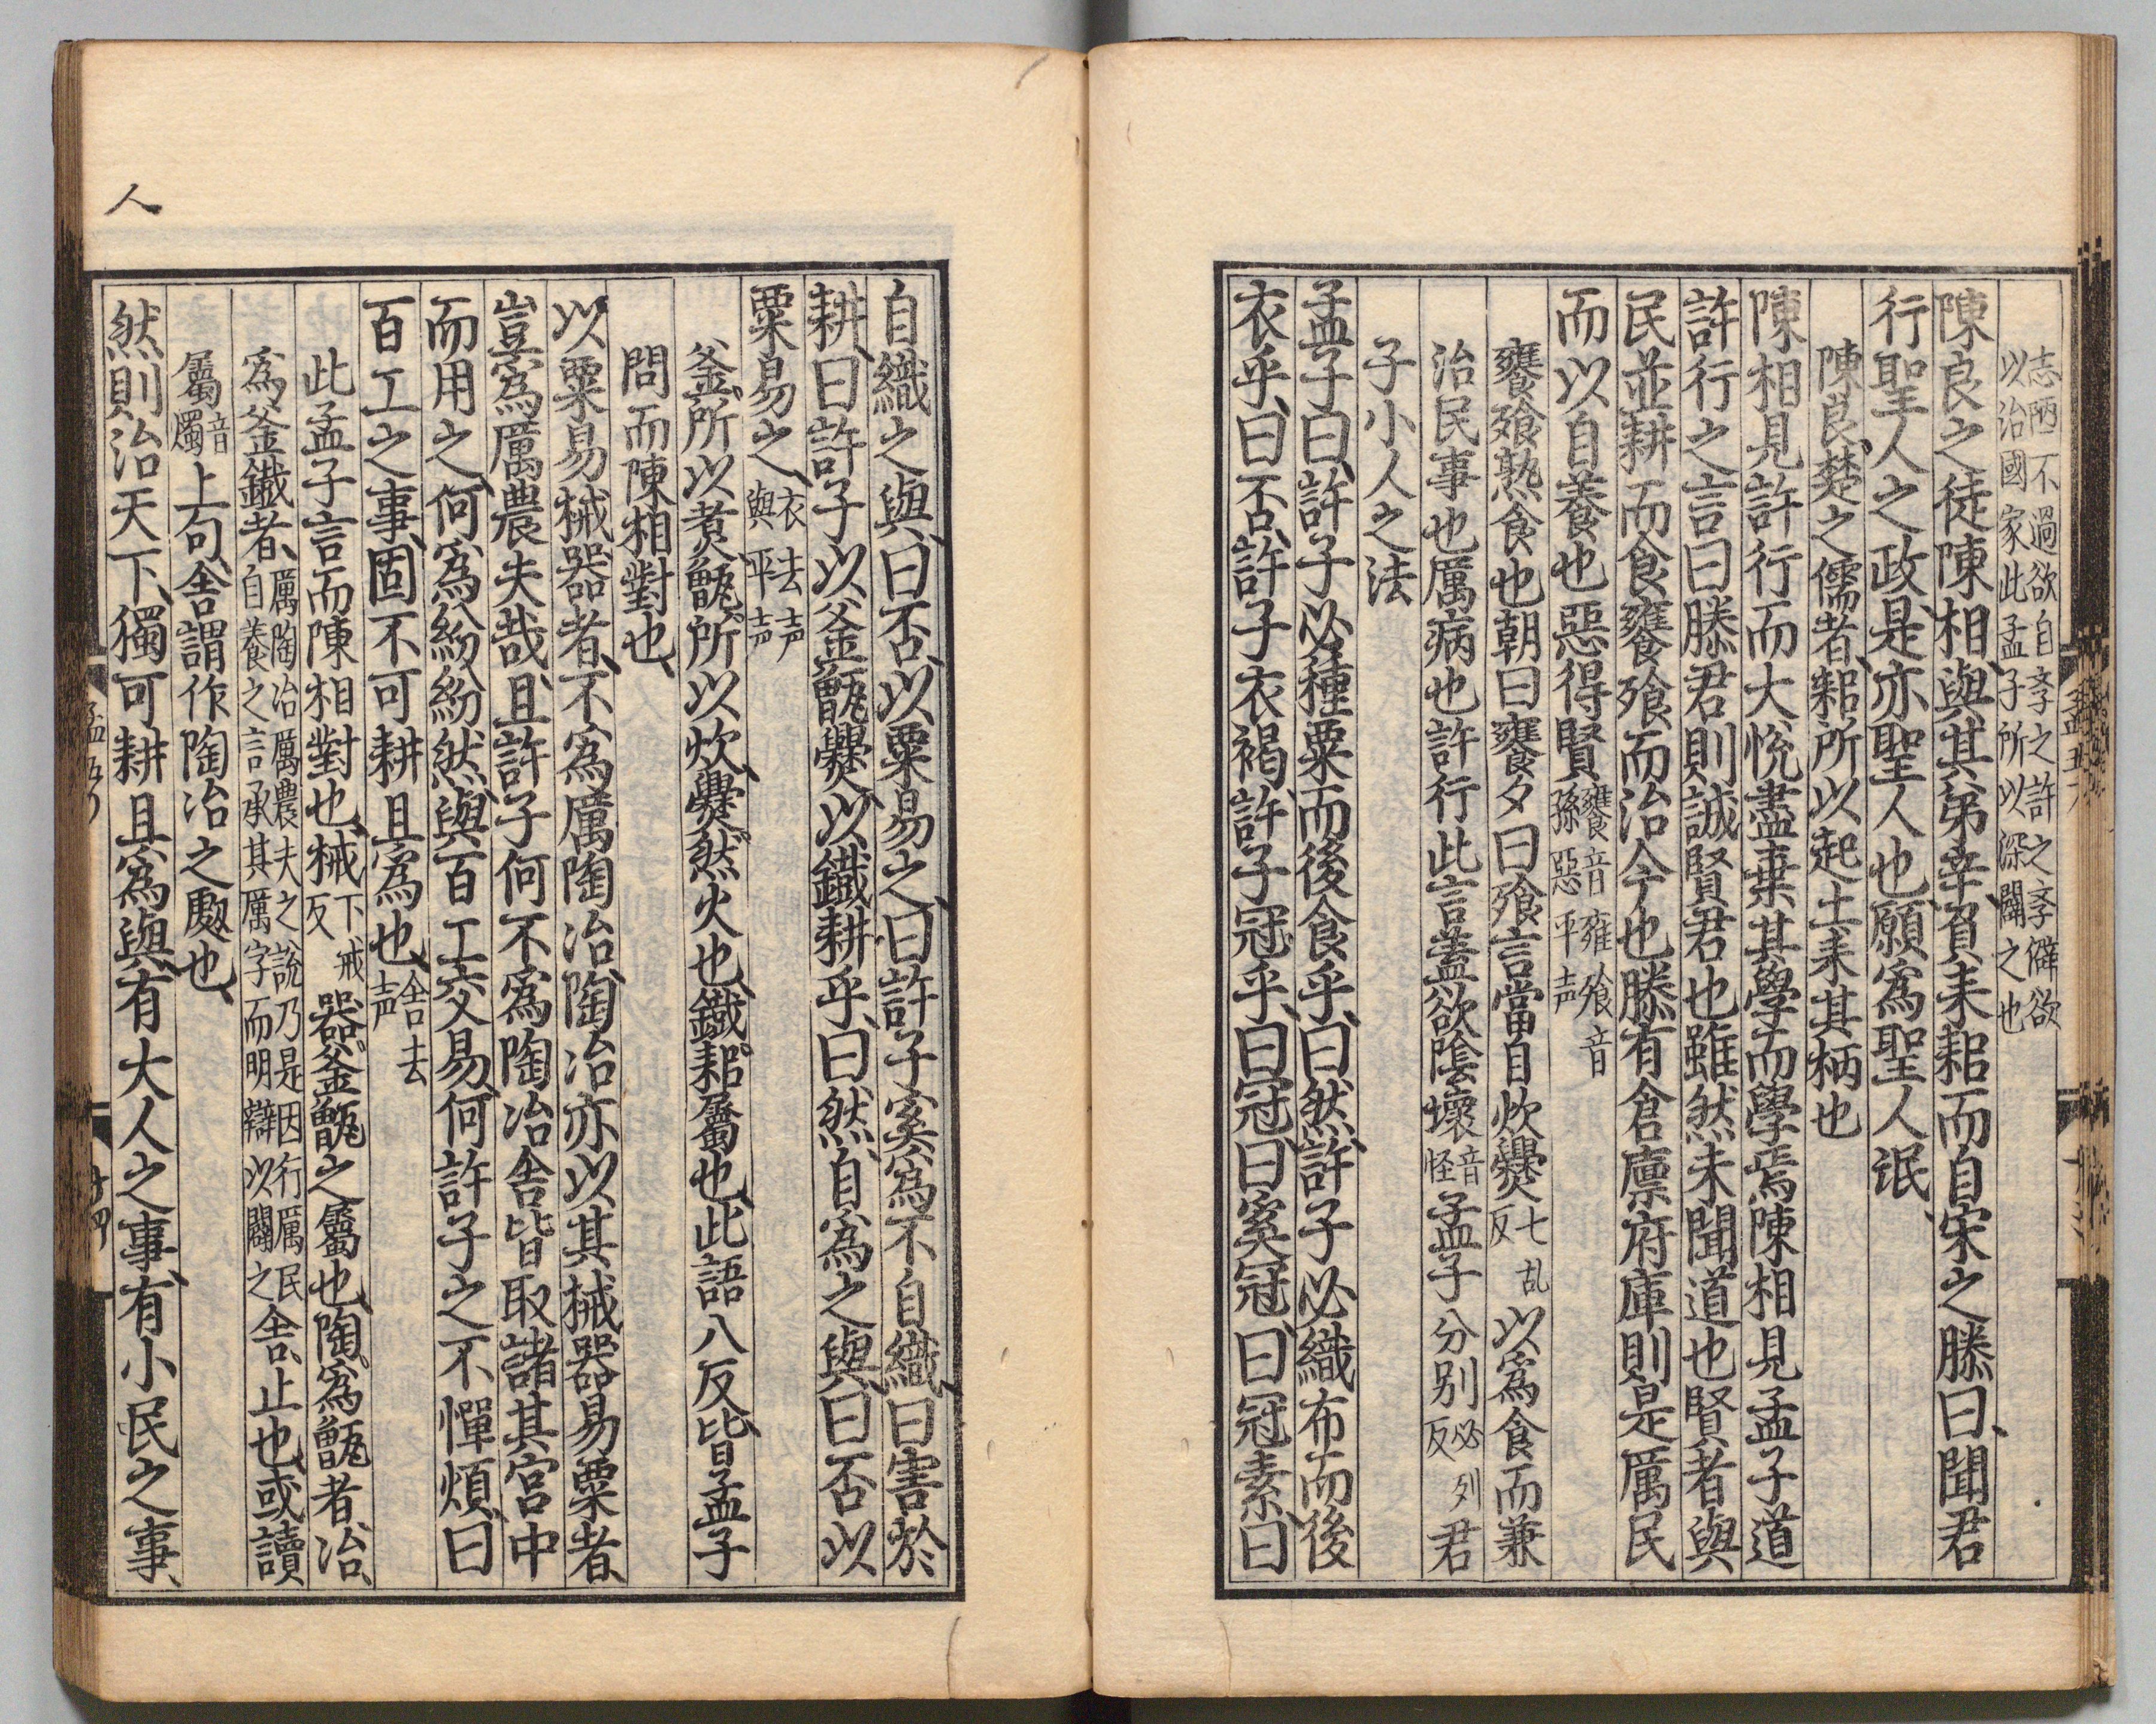 志陋不過欲自孝之許之孝僻欲
以治國家此孟子所以深闢之也
陳良之徒陳相、與其弟辛、負耒耜而自宋之滕曰、聞君
行聖人之政、是亦聖人也、願爲聖人氓、
陳良、楚之儒者、耜所以起土耒其柄也
陳相見許行而大悅盡棄其學而學焉陳相見孟子道
許行之言曰滕君則誠賢君也雖然未聞道也賢者與
民並耕而食饔飧而治今也滕有倉廪府庫則是厲民
而以自養也惡得賢饔音雍飧音
孫惡平声
饔飧熟食也朝曰饔夕曰飧言當自炊爨七乱
反以爲食而兼
治民事也厲病也許行此言蓋欲陰壞音
怪孟子分別必列
反君
子小人之法
孟子曰、許子必種粟而後食乎、曰然、許子必織布而後
衣乎、曰否、許子衣褐、許子冠乎、曰冠、曰奚冠、曰冠素、曰
自織之與、曰否、以粟易之、曰許子奚爲不自織、曰害於
耕、曰許子以釜甑爨、以鐵耕乎、曰然、自爲之與、曰否以
粟易之、衣去声
與平声
釜、所以煮、甑、所以炊、爨、然火也、鐵、耜屬也、此語八反、皆孟子
問而陳相對也、
以粟易械器者、不爲厲陶冶、陶冶亦以其械器易粟者、
豈爲厲農夫哉、且許子何不爲陶冶舍皆取諸其宮中
而用之、何爲紛紛然、與百工交易、何許子之不憚煩、曰
百工之事、固不可耕且爲也、舍去
声
此孟子言而陳相對也、械下戒
反器、釜甑之屬也、陶、爲甑者、冶、
爲釜鐵者、厲陶冶厲農夫之說乃是因行厲民
自養之言承其厲字而明辯以闢之舍、止也、或讀
屬音
燭上句、舍謂作陶冶之處也、
然則治天下、獨可耕且爲與、有大人之事、有小民之事、
人